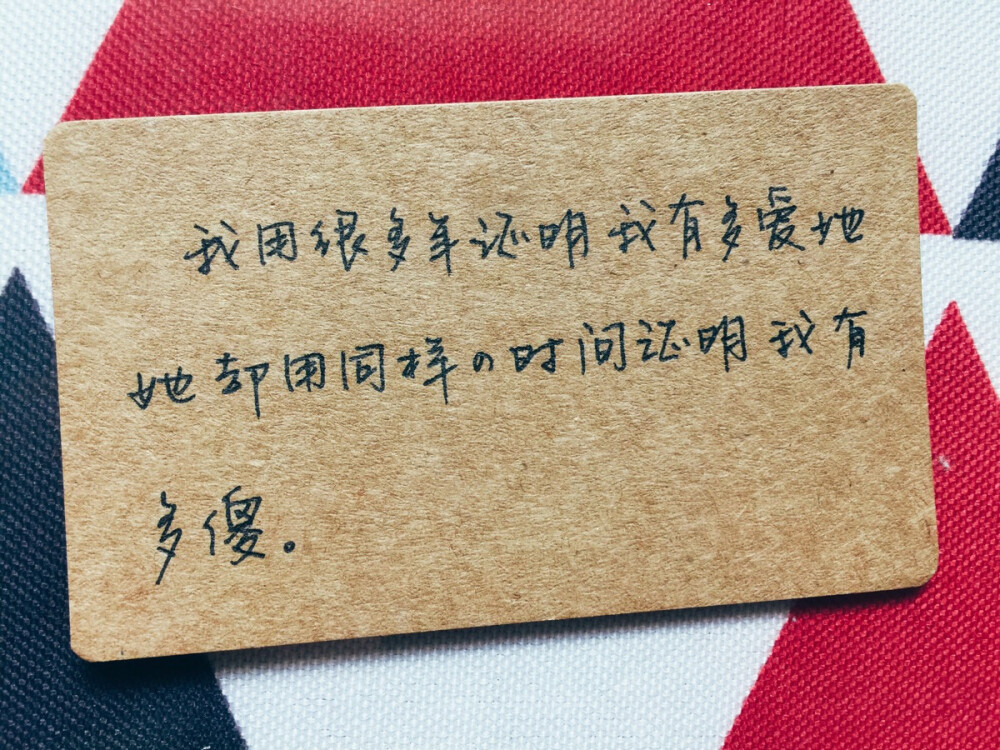 我用很多年证明我有多爱她
她却用同样の时间证明我有
多傻。